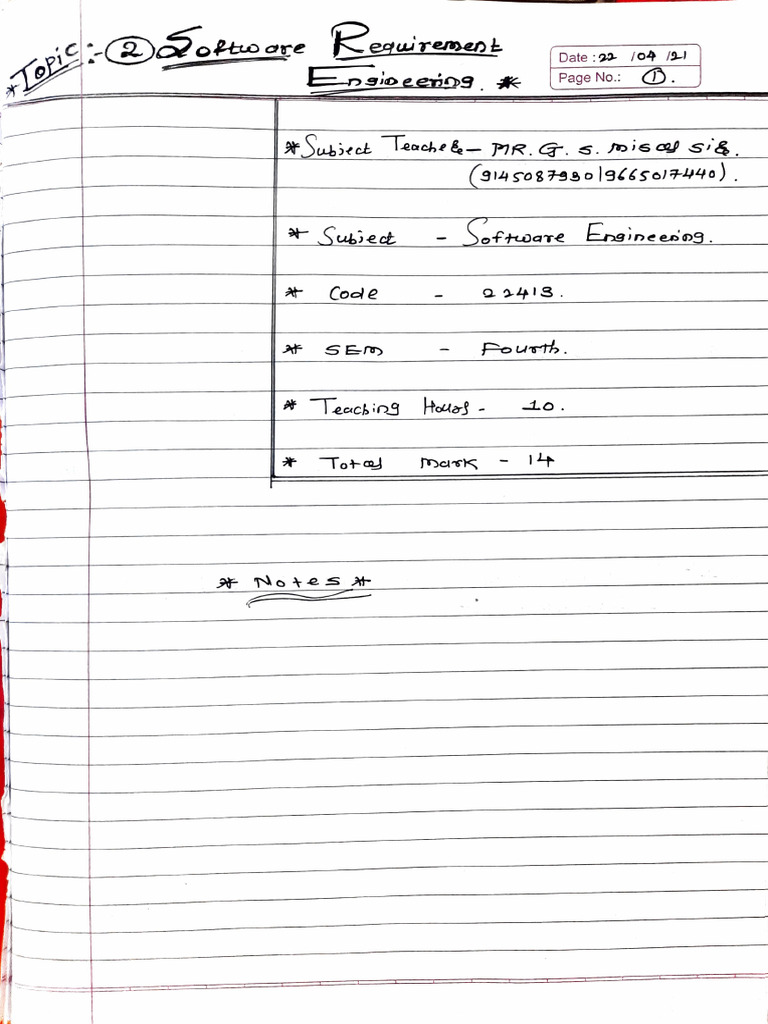 * Topic :- ② Software Requirement
Engineering. *
Date : 22 / 04 / 21
Page No.: ①.
* Subject Teacher - MR. G. S. misal sir.
(9145087930|9665017440).
* Subject - Software Engineering.
* Code - 22413.
* SEM - Fourth.
* Teaching Hours - 10.
* Total mark - 14
* Notes *